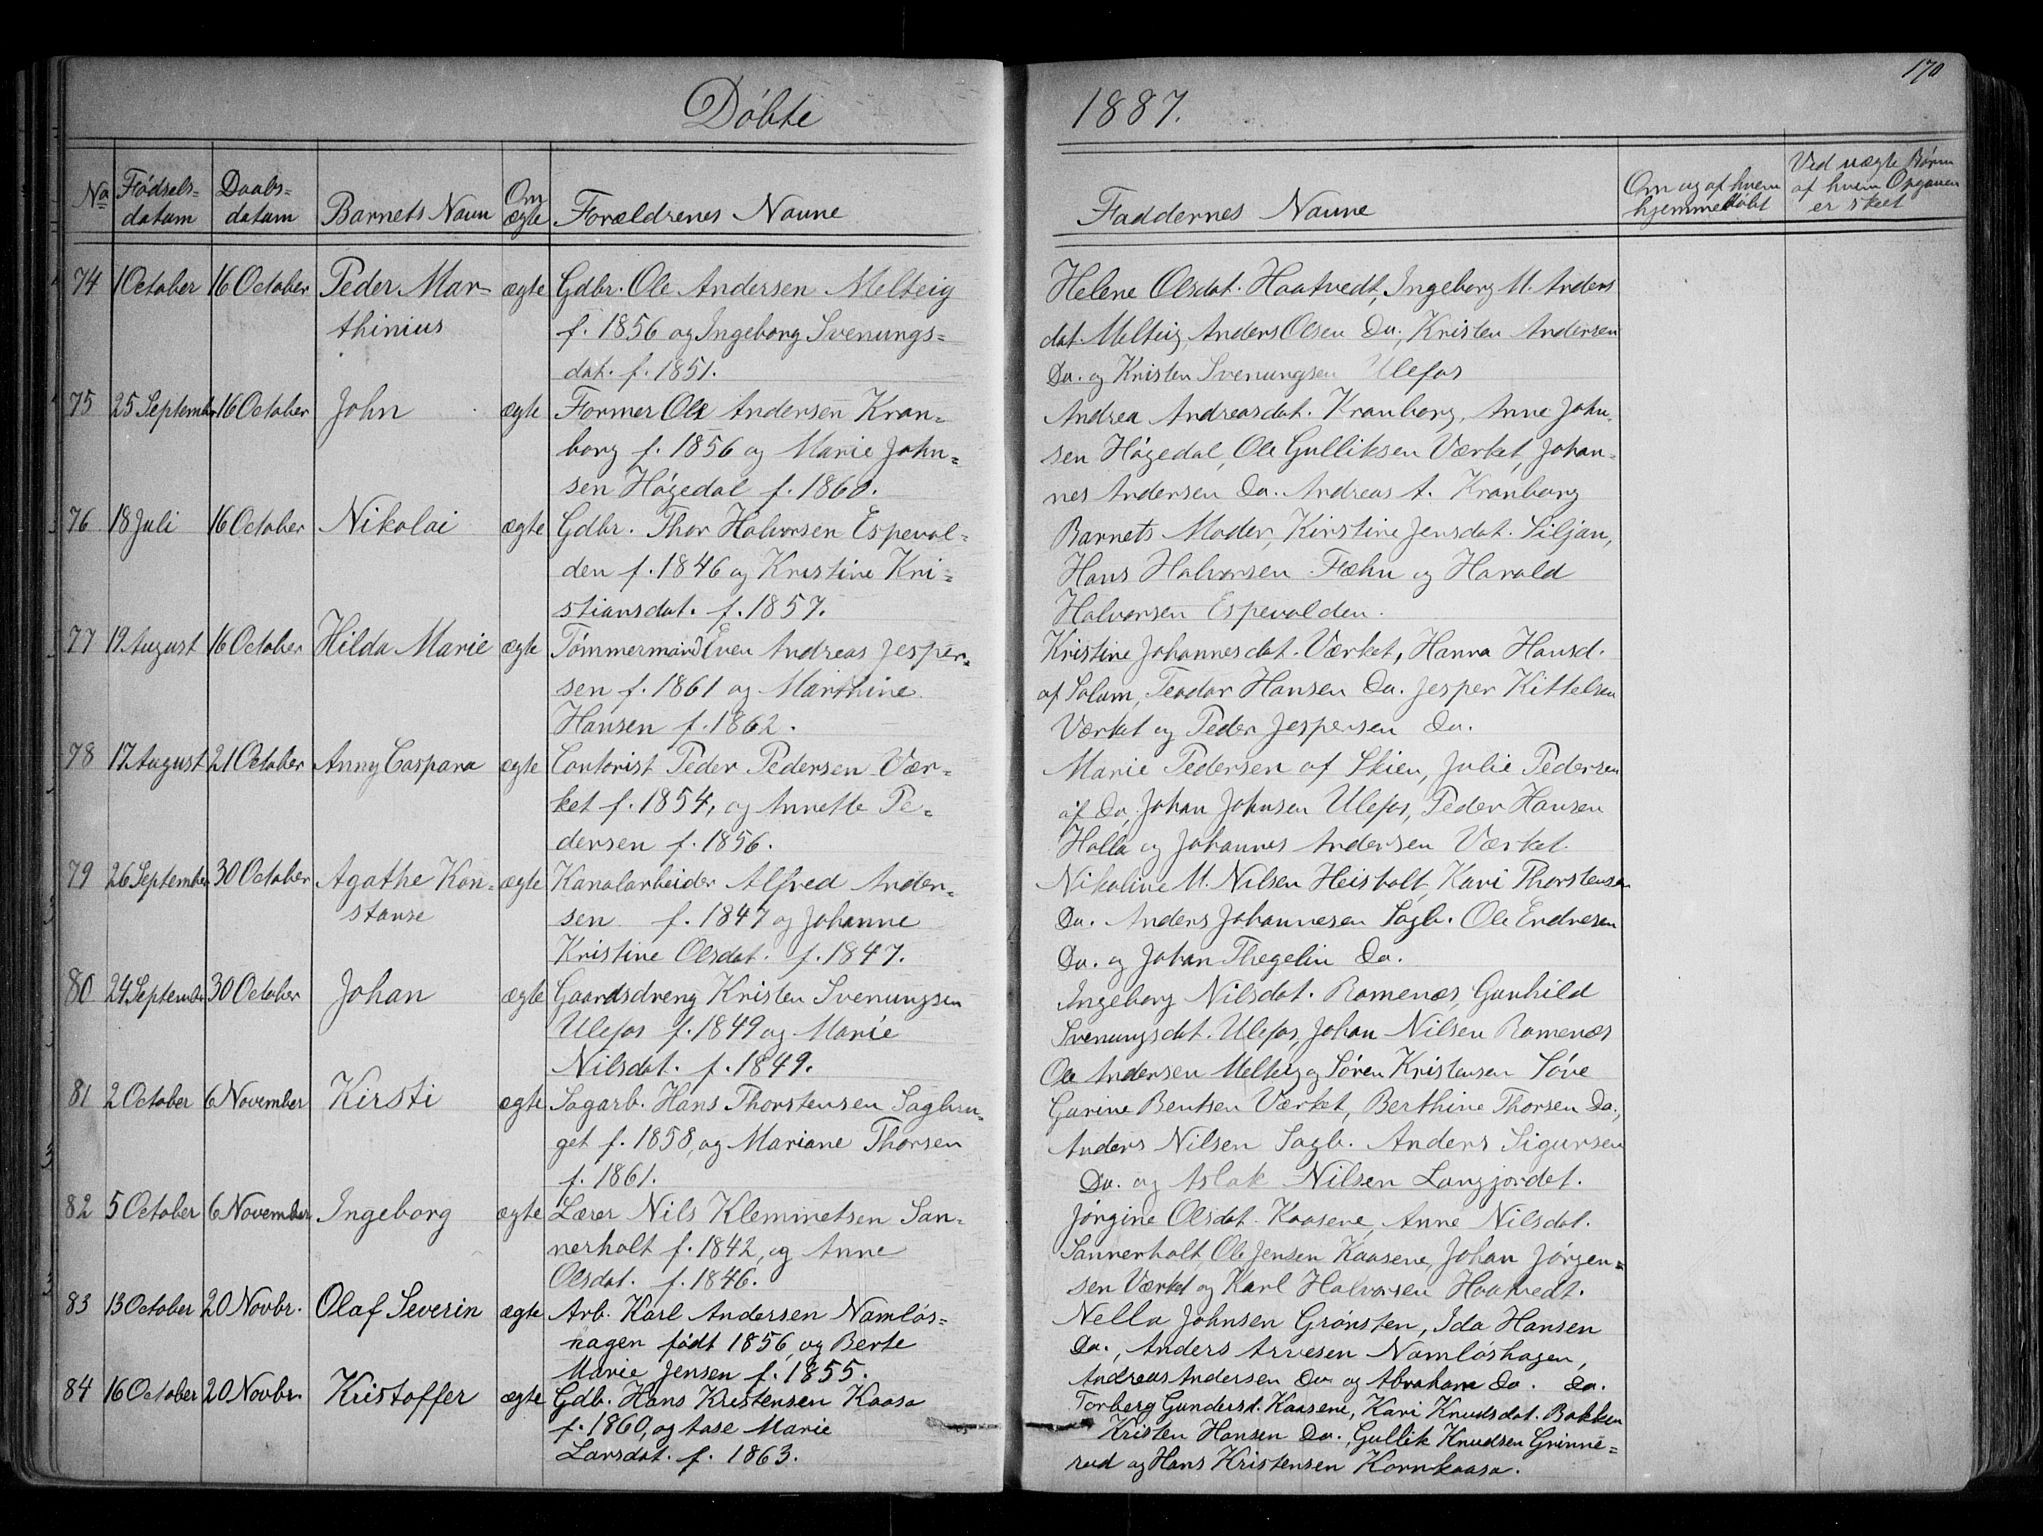 170
Döbte 1887.
No Födsels= datum Daabs= datum Barnets Navn Om ægte Forældrenes Navne
Faddernes Navne Om og af hvem hjemmedöbt Ved uægte Børn af hvem Opgaven er skeet
74 1 October 16 October Peder Mar- ægte Gdbr. Ole Andersen Melteig
thinius f. 1856 og Ingeborg Svenungs=
dat. f. 1851.
75 25 September 16 October John ægte Former Ole Andersen Kran=
borg f. 1856 og Marie John=
sen Högedal f. 1860.
76 18 Juli 16 October Nikolai ægte Gdbr. Thor Halvorsen Espevol=
den f. 1846 og Kristine Kri=
stiansdat. f. 1857.
77 19 August 16 October Hilda Marie ægte Tömmermand Even Andreas Jesper=
sen f. 1861 og Marthine
Hansen f. 1862.
78 17 August 21 October Anny Caspara ægte Contorist Peder Pedersen Vær=
ket f. 1854, og Annette Pe=
dersen f. 1856.
79 26 September 30 October Agathe Kon= ægte Kanalarbeider Alfred Ander=
stanse sen f. 1847 og Johanne
Kristine Olsdat. f. 1847.
80 24 September 30 October Johan ægte Gaardsdreng Kristen Svenungsen
Ulefos f. 1849 og Marie
Nilsdat. f. 1849.
81 2 October 6 November Kirsti ægte Sagarb. Hans Thorstensen Sagbru=
get f. 1858, og Mariane Thorsen
f. 1861.
82 5 October 6 November Ingeborg ægte Lærer Nils Klemmetsen San=
nerholt f. 1842, og Anne
Olsdat. f. 1846.
83 13 October 20 Novbr. Olaf Severin ægte Arb. Karl Andersen Namlös=
hagen födt 1856, og Berte
Marie Jensen f. 1855.
84 16 October 20 Novbr. Kristoffer ægte Gdb. Hans Kristensen Kaasa
f. 1860, og Aase Marie
Larsdat. f. 1863.
Helene Olsdat. Haatvedt, Ingeborg M. Anders
dat. Melteig, Anders Olsen Do., Kristen Andersen
Do. og Kristen Svenungsen Ulefos
Andrea Andreasdat. Kranborg, Anne John=
sen Högedal, Ole Gulliksen Værket, Johan=
nes Andersen Do. Andreas A. Kranborg
Barnets Moder, Kirstine Jensdat. Siljan,
Hans Halvorsen Fæhn og Harald
Halvorsen Espevolden.
Kristine Johannesdat. Værket, Hanna Hansd.
af Solum, Teodor Hansen Do. Jesper Kittelsen
Værket og Peder Jespersen Do.
Marie Pedersen af Skien, Julie Pedersen
af Do, Johan Johnsen Ulefos, Peder Hansen
Holla og Johannes Andersen Værket.
Nikoline M. Nilsen Heisholt, Kari Thorstensen
Do. Anders Johannesen Sagb. Ole Endresen
Do. og Johan Thegelin Do.
Ingeborg Nilsdat. Romenæs, Gunhild
Svenungsdat. Ulefos, Johan Nilsen Romenæs
Ole Andersen Melteig og Sören Kristensen Söve
Gurine Bentsen Værket, Berthine Thorsen Do.,
Anders Nilsen Sagb. Anders Sigursen
Do. og Aslak Nilsen Langjordet.
Jörgine Olsdat. Kaasene, Anne Nilsdat.
Sannerholt, Ole Jensen Kaasene, Johan Jörgen=
sen Værket og Karl Halvorsen Haatvedt.
Nella Johnsen Grönsten, Ida Hansen
Do., Anders Arvesen Namlöshagen,
Andreas Andersen Do og Abraham Do. Do.
Torberg Gundersd. Kaasene, Kari Knudsdat. Bakken
Kristen Hansen Do. Gullik Knudsen Grinne=
rud og Hans Kristensen Kornkaasa.